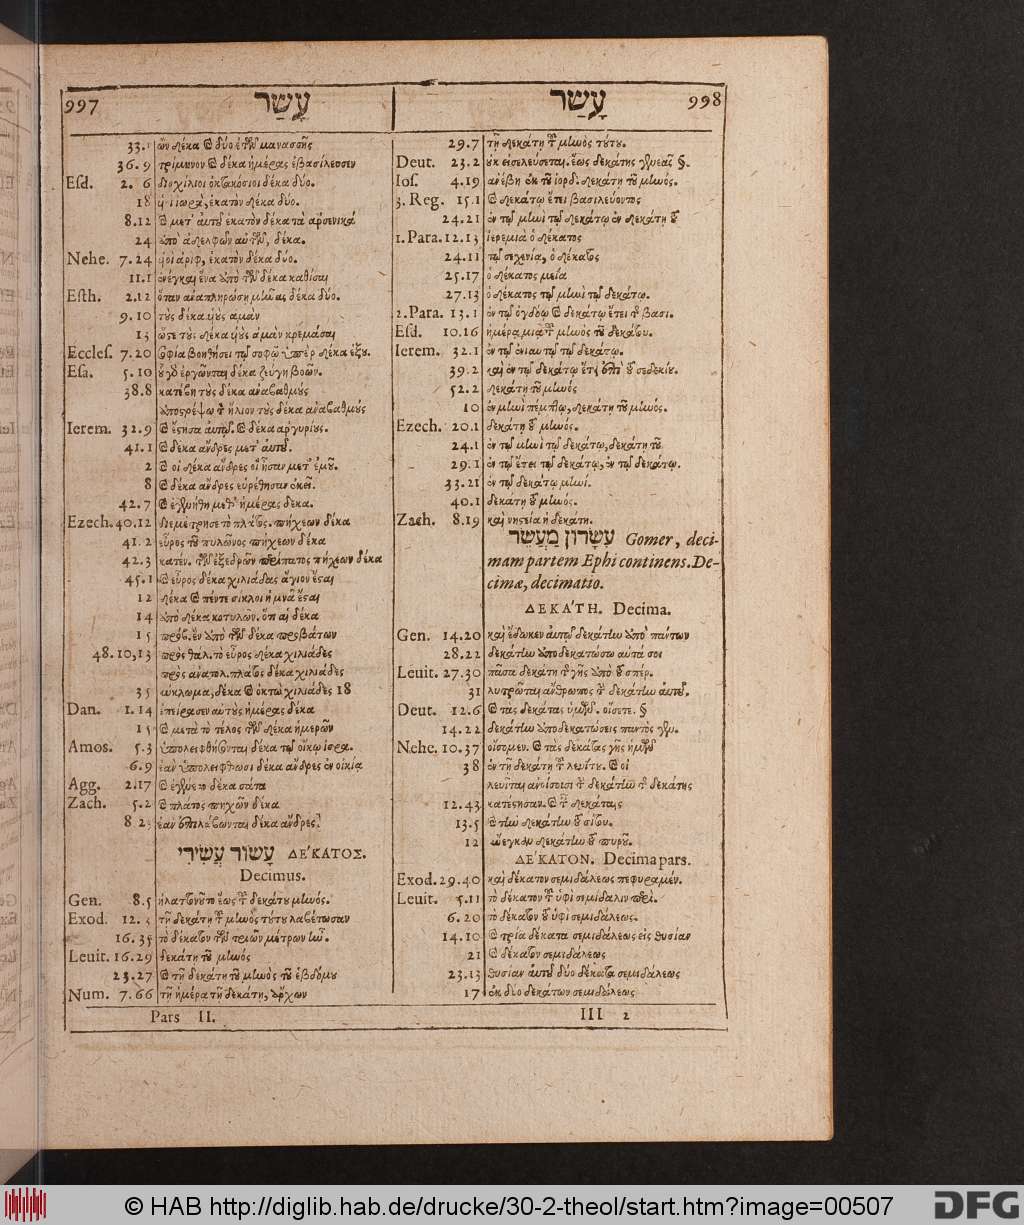 997 עָשַׂר
33.1 ὧν δέκα
36.9 τρίμηνον καὶ δέκα ἡμέρας ἐβασίλευσεν
Esd. 2.6 δισχίλιοι ὀκτακόσιοι δέκα δύο.
18 ἑκατὸν δέκα δύο.
8.12 καὶ μετ' αὐτοῦ ἑκατὸν δέκα τὰ ἀρσενικά
24 δέκα.
Nehe. 7.24 υἱοὶ ἀρὶφ, ἑκατὸν δέκα δύο.
11.1 ἐνέγκαι ἕνα ἀπὸ τῶν δέκα καθίσαι
Esth. 2.12 δέκα δύο.
9.10 τοὺς δέκα υἱοὺς ἀμὰν
13 ὥστε τοὺς δέκα υἱοὺς ἀμὰν κρεμάσαι
Eccles. 7.20 σοφία βοηθήσει τῷ σοφῷ ὑπὲρ δέκα
Esa. 5.10 δέκα ζεύγη βοῶν.
38.8 κατέβη τοὺς δέκα ἀναβαθμούς
ἀποστρέψω τὸν ἥλιον τοὺς δέκα ἀναβαθμούς
Ierem. 32.9 καὶ ἔστησα αὐτῷ. καὶ δέκα ἀργυρίους.
41.1 καὶ δέκα ἄνδρες μετ' αὐτοῦ.
2 καὶ οἱ δέκα ἄνδρες οἳ ἦσαν μετ' ἐμοῦ.
8 καὶ δέκα ἄνδρες εὑρέθησαν ἐκεῖ.
42.7 καὶ ἐγενήθη μεθ' ἡμέρας δέκα.
Ezech. 40.12 διεμέτρησε τὸ πλάτος. πήχεων δέκα
41.2 εὖρος τοῦ πυλῶνος πήχεων δέκα
42.3 πήχεων δέκα
45.1 καὶ εὖρος δέκα χιλιάδας ἅγιον ἔσται
12 δέκα καὶ πέντε σίκλοι ἡ μνᾶ ἔσται
14 ἀπὸ δέκα κοτυλῶν. ὅτι αἱ δέκα
15 ἀπὸ τῶν δέκα προβάτων
48.10,13 πρὸς θαλ. τὸ εὖρος δέκα χιλιάδες
πρὸς ἀνατολ. πλάτος δέκα χιλιάδες
35 κύκλωμα, δέκα καὶ ὀκτὼ χιλιάδες 18
Dan. 1.14 ἐπείρασεν αὐτοὺς ἡμέρας δέκα
15 καὶ μετὰ τὸ τέλος τῶν δέκα ἡμερῶν
Amos. 5.3 ὑπολειφθήσονται δέκα τῷ οἴκῳ ἰσρα.
6.9 ἐὰν ὑπολειφθῶσι δέκα ἄνδρες ἐν οἰκίᾳ
Agg. 2.17 καὶ ἐγένετο δέκα σάτα
Zach. 5.2 καὶ πλάτος πηχῶν δέκα
8.23 ἐὰν ἐπιλάβωνται δέκα ἄνδρες
עָשׂוֹר עֲשִׂירִי ΔΕ'ΚΑΤΟΣ.
Decimus.
Gen. 8.5 ἕως τοῦ δεκάτου μηνός.
Exod. 12.3 τῇ δεκάτῃ τοῦ μηνὸς τούτου λαβέτωσαν
16.35 τὸ δέκατον τῶν τριῶν μέτρων ἦν.
Leuit. 16.29 δεκάτῃ τοῦ μηνός
23.27 καὶ τῇ δεκάτῃ τοῦ μηνὸς τοῦ ἑβδόμου
Num. 7.66 τῇ ἡμέρᾳ τῇ δεκάτῃ, ἄρχων
Pars II.
עָשַׂר 998
29.7 τῇ δεκάτῃ τοῦ μηνὸς τούτου.
Deut. 23.2 οὐκ εἰσελεύσεται. ἕως δεκάτης γενεᾶς §.
Ios. 4.19 ἀνέβη ἐκ τοῦ ἰορδ. δεκάτῃ τοῦ μηνός.
3. Reg. 15.1 καὶ δεκάτῳ ἔτει βασιλεύοντος
24.21 ἐν τῷ μηνὶ τῷ δεκάτῳ ἐν δεκάτῃ τοῦ
1. Para. 12.13 ἱερεμιὰ ὁ δέκατος
24.11 τῷ σεχενίᾳ, ὁ δέκατος
25.17 ὁ δέκατος
27.13 ὁ δέκατος τῷ μηνὶ τῷ δεκάτῳ.
2. Para. 13.1 ἐν τῷ ὀγδόῳ καὶ δεκάτῳ ἔτει τοῦ βασι.
Esd. 10.16 ἡμέρᾳ μιᾷ τοῦ μηνὸς τοῦ δεκάτου.
Ierem. 32.1 ἐν τῷ ἐνιαυτῷ τῷ δεκάτῳ.
39.2 καὶ ἐν τῷ δεκάτῳ ἔτει ἐπὶ τοῦ σεδεκίου.
52.2 δεκάτῃ τοῦ μηνός
10 ἐν μηνὶ πέμπτῳ, δεκάτῃ τοῦ μηνός.
Ezech. 20.1 δεκάτῃ τοῦ μηνός.
24.1 ἐν τῷ μηνὶ τῷ δεκάτῳ, δεκάτῃ τοῦ
29.1 ἐν τῷ ἔτει τῷ δεκάτῳ, ἐν τῷ δεκάτῳ.
33.21 ἐν τῷ δεκάτῳ μηνί.
40.1 δεκάτῃ τοῦ μηνός.
Zach. 8.19 καὶ νηστεία ἡ δεκάτη.
עִשָּׂרוֹן מַעֲשֵׂר Gomer, deci-
mam partem Ephi continens. De-
cimæ, decimatio.
ΔΕΚΑ'ΤΗ. Decima.
Gen. 14.20 καὶ ἔδωκεν αὐτῷ δεκάτην ἀπὸ πάντων
28.22 δεκάτην ἀποδεκατώσω αὐτά σοι
Leuit. 27.30 πᾶσα δεκάτη τῆς γῆς ἀπὸ τοῦ σπέρ.
31 λυτρῶται ἄνθρωπος τὴν δεκάτην αὐτοῦ.
Deut. 12.6 καὶ τὰς δεκάτας ὑμῶν. οἴσετε. §
14.22 δεκάτην ἀποδεκατώσεις παντὸς γεν.
Nehe. 10.37 οἴσομεν. καὶ τὰς δεκάτας γῆς ἡμῶν
38 ἐν τῇ δεκάτῃ τοῦ λευίτου. καὶ οἱ
λευῖται ἀνοίσουσι τὴν δεκάτην τῆς δεκάτης
12.43 κατέστησαν. καὶ ταῖς δεκάταις
13.5 καὶ τὴν δεκάτην τοῦ σίτου.
12 ἤνεγκαν δεκάτην τοῦ πυροῦ.
ΔΕ'ΚΑΤΟΝ. Decima pars.
Exod. 29.40 καὶ δέκατον σεμιδάλεως πεφυραμέν.
Leuit. 5.11 τὸ δέκατον τοῦ ὑφὶ σεμίδαλιν περὶ.
6.20 τὸ δέκατον τοῦ ὑφὶ σεμιδάλεως.
14.10 καὶ τρία δέκατα σεμιδάλεως εἰς θυσίαν
21 καὶ δέκατον σεμιδάλεως
23.13 θυσίαν αὐτοῦ δύο δέκατα σεμιδάλεως
17 ἐκ δύο δεκάτων σεμιδάλεως
III 2
© HAB http://diglib.hab.de/drucke/30-2-theol/start.htm?image=00507
DFG